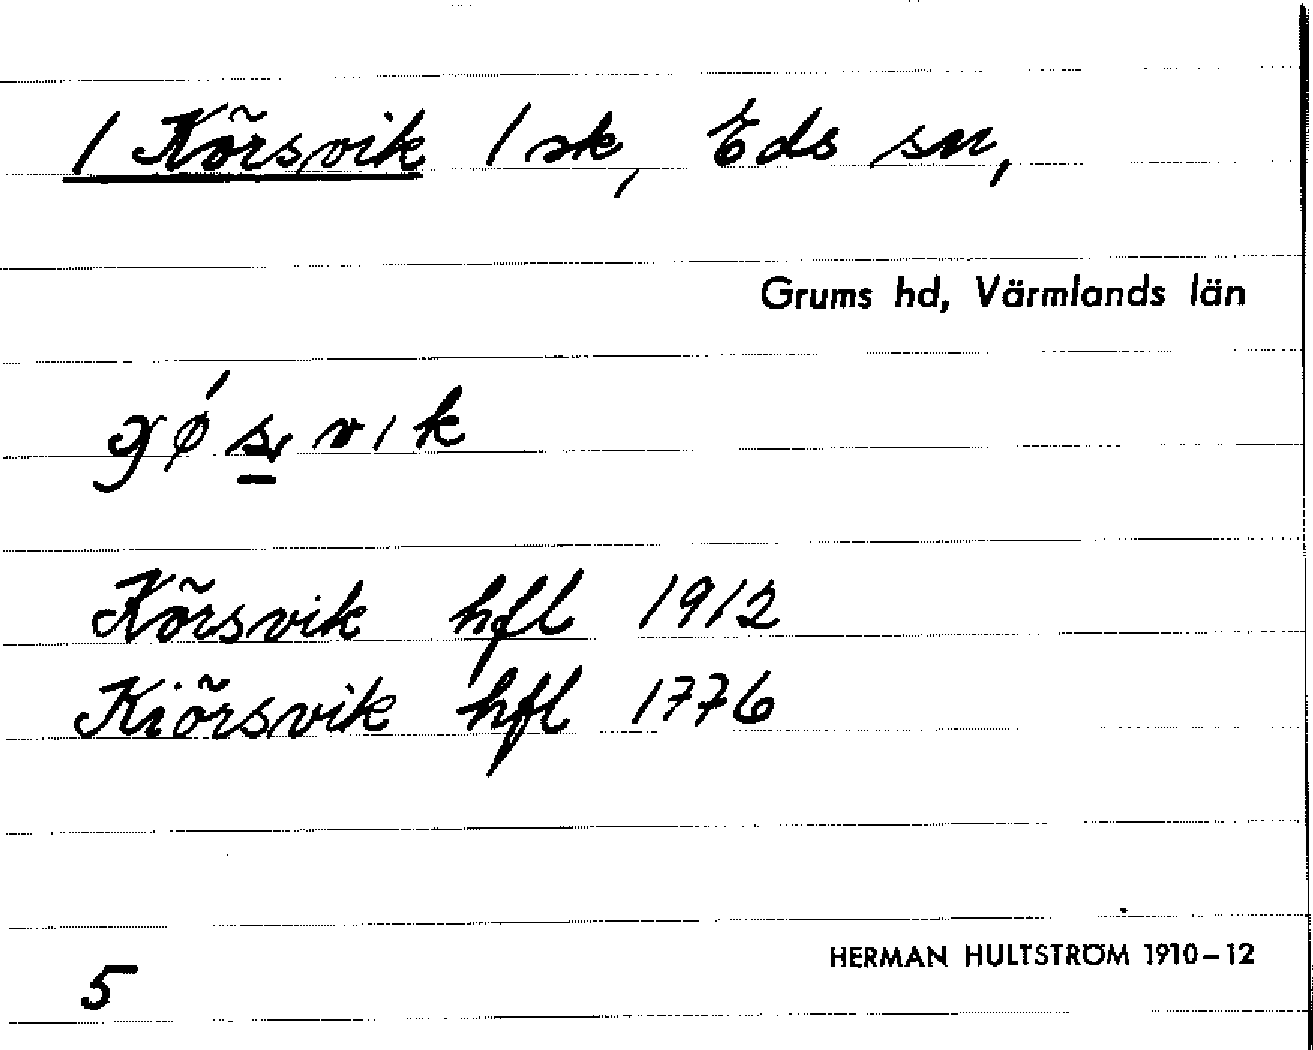 / Körsvik / sk, Eds sn,
Grums hd, Värmlands län
Körsvik hfl 1912
Kiörsvik hfl 1776
5
HERMAN HULTSTRÖM 1910–12